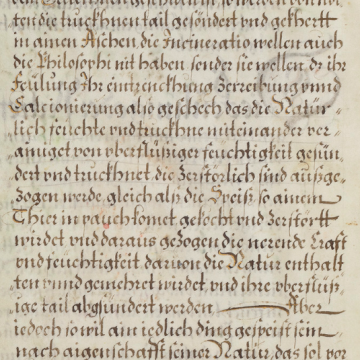 ten die truckhnen tail gesöndert vnd gekhertt
in ainen Aschen, die Incineratio wellen auch
die Philosophi nit haben sonder sie wellen dz ihr
Feülung Ihr eintrenckhung Zerreibung vnnd
Calcionierung also geschech das die Natür-
lich feuchte vnd truckhne miteinander ver-
ainiget von vberflüßiger feuchtigkeit gesün
dert vnd truckhnet die Zerstörlich sind außge-
zogen werde, gleich alß die Speiß so ainem
Thier in pauch komet gekocht vnd Zerstortt
wirdet vnd daraus gezogen die nerende Craft
vnd feuchtigkeit daruon die Natur enthalt
ten vnnd gemehret wirdet, vnd ihre vberflüß-
ige tail abgsündert werden Aber
iedoch so wil ain iedlich ding gespeist sein
nach aigenschafft seiner Natur das sol vor